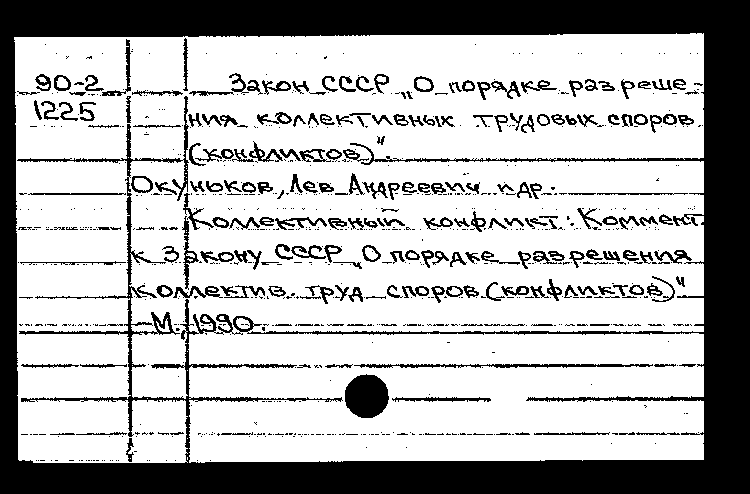 90-2 Закон СССР „О порядке разреше-
1225 ния коллективных трудовых споров
(конфликтов)".
Окуньков, Лев Андреевич и др.
Коллективный конфликт: Коммент.
к Закону СССР „О порядке разрешения
коллектив. труд споров (конфликтов)"
–М., 1990.